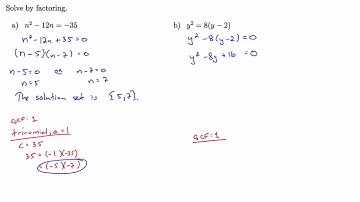 Solve by factoring.
a) n² − 12n = −35
n² − 12n + 35 = 0
(n − 5)(n − 7) = 0
n − 5 = 0 or n − 7 = 0
n = 5 n = 7
The solution set is {5, 7}.
GCF: 1
trinomial, a = 1
c = 35
35 = (−1)(−35)
= (−5)(−7)
b) y² = 8(y − 2)
y² − 8(y − 2) = 0
y² − 8y + 16 = 0
GCF: 1